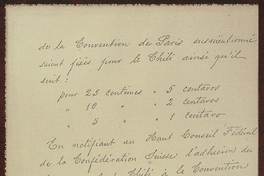 de la Convention de Paris susmentionné
soient fixés pour le Chili ainsi qu'il
suit:
pour 25 centimes . 5 centavos
" 10 " " 2 centavos
" 5 " " 1 centavo
En notifiant au Haut Conseil Fédéral
de la Confédération Suisse l'adhésion du
Chili à la Convention